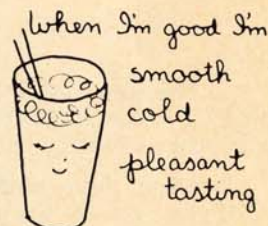 When I'm good I'm
smooth
cold
pleasant
tasting